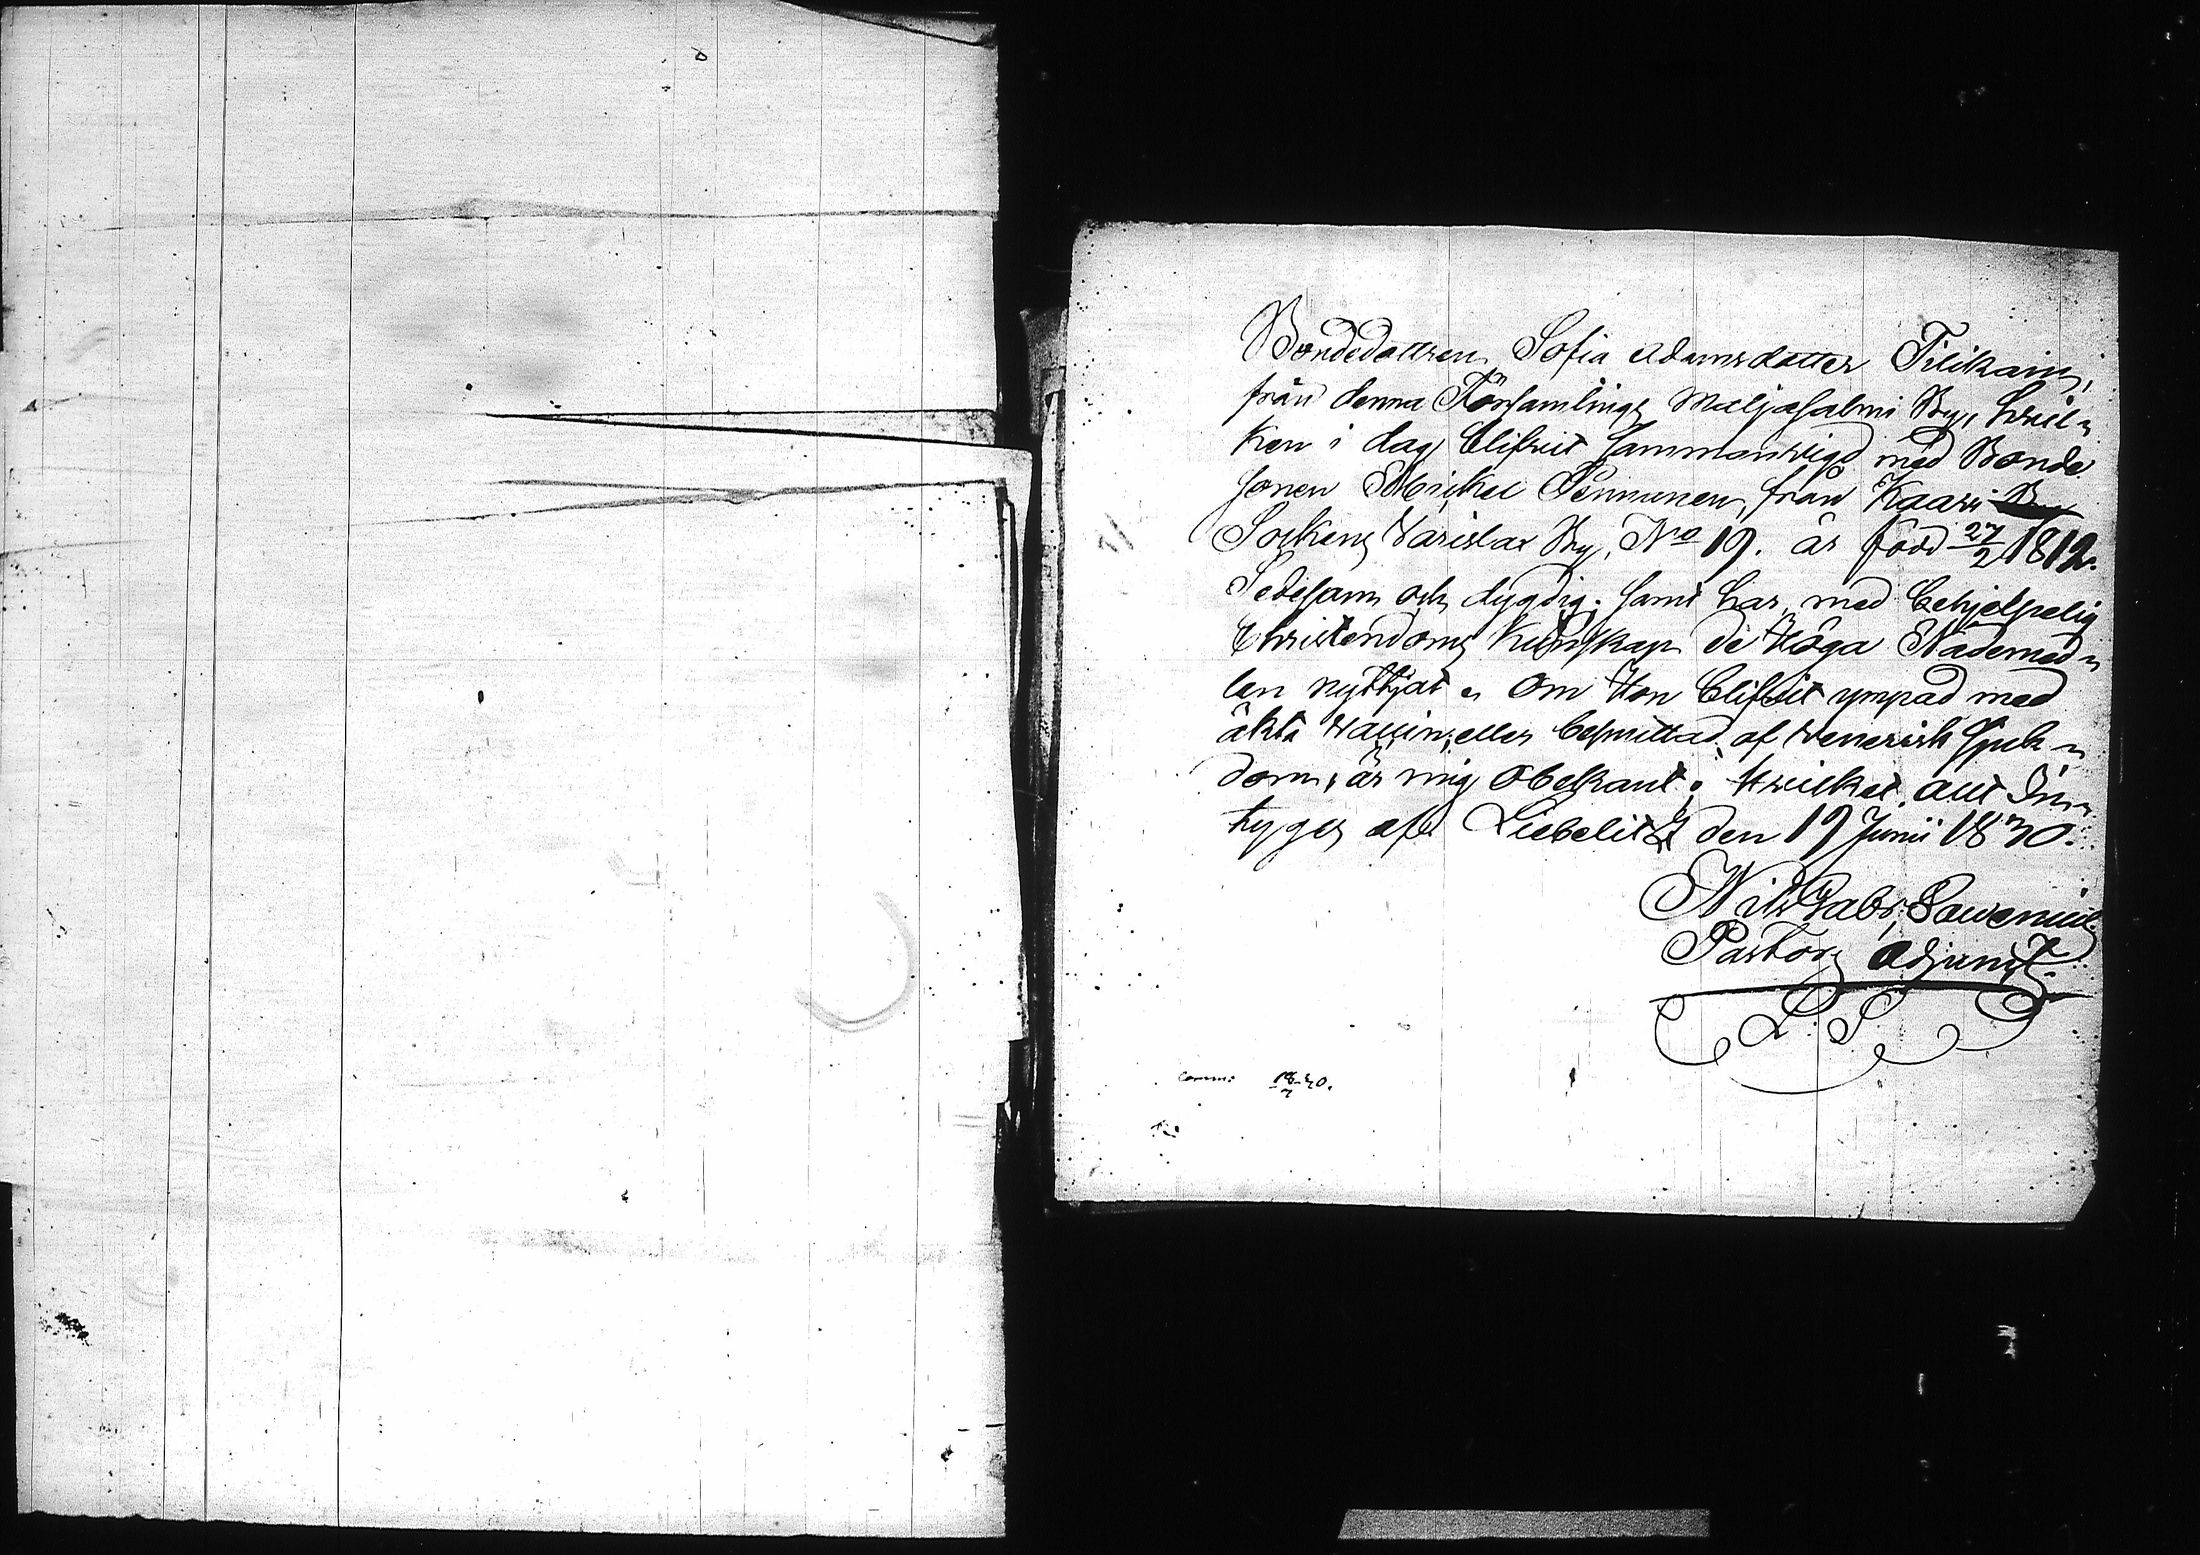 Bondedottren Sofia Adamsdotter Tiikain,
från denna Församlings Maljasalmi By, hvil-
ken i dag blifvit sammanvigd med Bonde
sonen Mickel Pennunen, från Kaavi
Sockens Varislax By, No 19. är född 27/2 1812.
Sedesam och dygdig; samt har med behjelpelig
Christendoms Kunskap de Höga Nådemed-
len nyttjat. Om Hon blifvit ympad med
äkta Vaccin, eller besmittad af Venerisk Sjuk-
dom, är mig obekant; hvilket allt In-
tyges af Liebelits den 19 Junii 1830.
Nils Gabr.
Pastors Adjunct.
L. S.
Comm: 18/7 30.